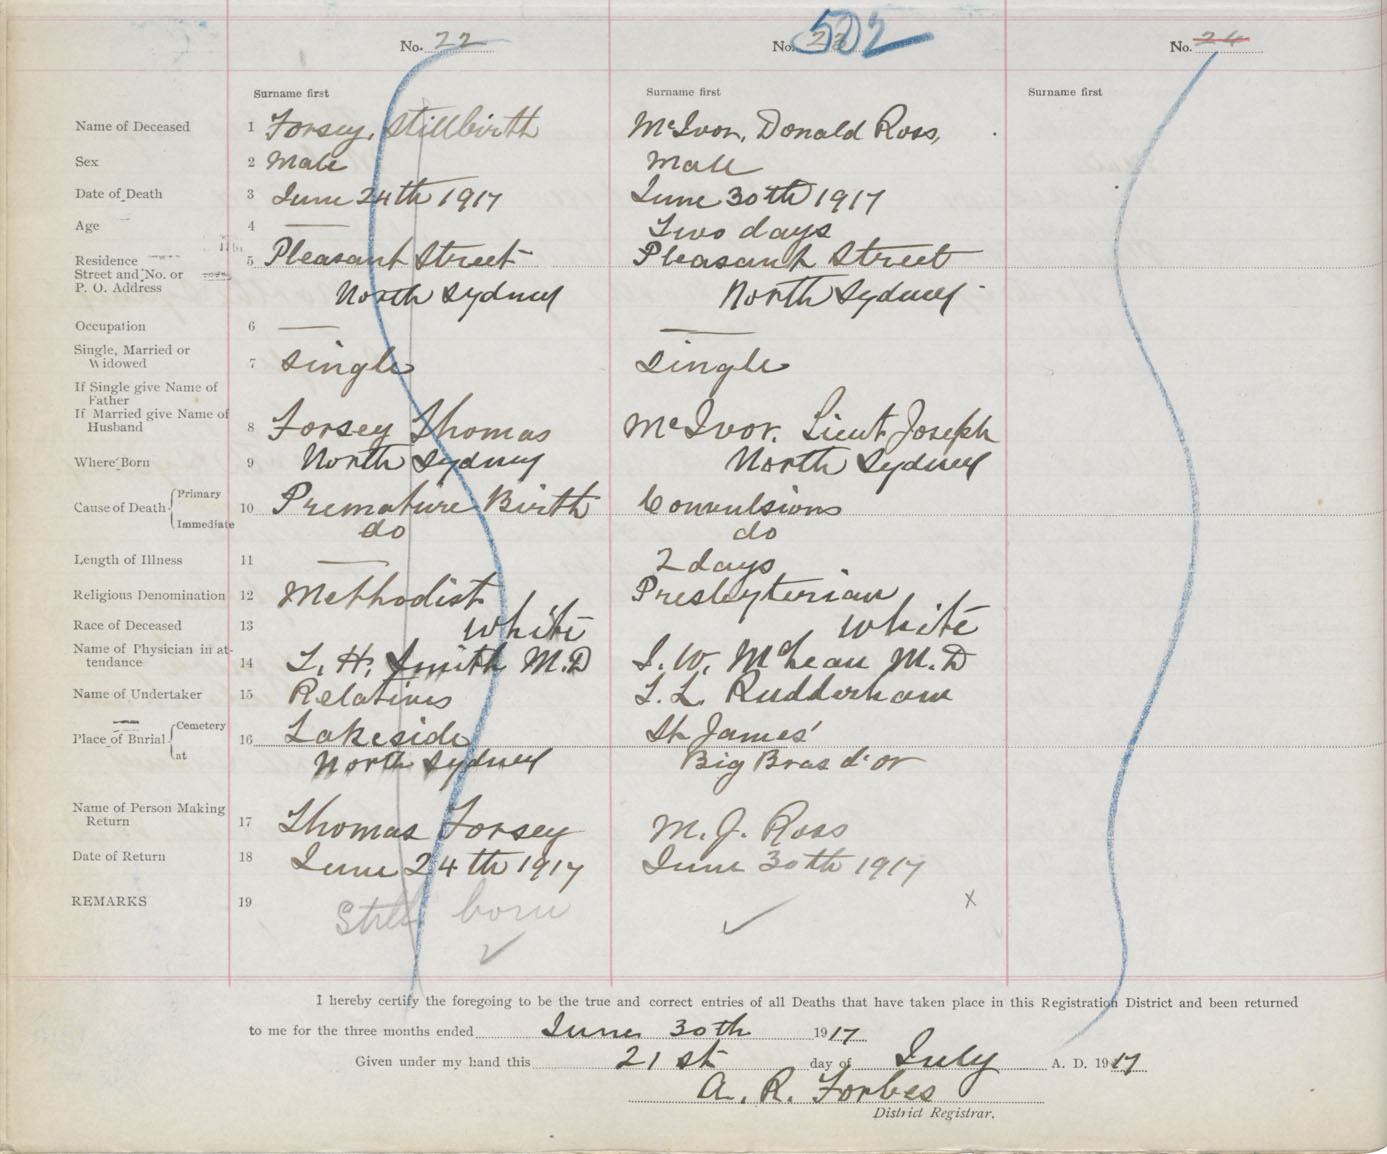 No. 22
No. 23 502
No. 24
Surname first
Surname first
Surname first
Name of Deceased 1 Forsey, Stillbirth McIvor, Donald Ross,
Sex 2 Male Male
Date of Death 3 June 24th 1917 June 30th 1917
Age 4 — Two days
Residence
Street and No. or
P. O. Address
5 Pleasant Street Pleasant Street
North Sydney North Sydney
Occupation 6 — —
Single, Married or
Widowed
7 Single Single
If Single give Name of
Father
If Married give Name of
Husband
8 Forsey Thomas McIvor. Lieut Joseph
Where Born 9 North Sydney North Sydney
Cause of Death Primary
Immediate
10 Premature Birth Convulsions
do do
Length of Illness 11 — 2 days
Religious Denomination 12 Methodist Presbyterian
Race of Deceased 13 White White
Name of Physician in at-
tendance
14 T. H. Smith M.D J. W. McLean M.D
Name of Undertaker 15 Relatives T. L. Rudderham
Place of Burial Cemetery
at
16 Lakeside St James'
North Sydney Big Bras d'or
Name of Person Making
Return
17 Thomas Forsey M. J. Ross
Date of Return 18 June 24th 1917 June 30th 1917
REMARKS 19 Still born ✓ ✓ x
I hereby certify the foregoing to be the true and correct entries of all Deaths that have taken place in this Registration District and been returned
to me for the three months ended June 30th 1917
Given under my hand this 21st day of July A. D. 1917
A. R. Forbes
District Registrar.